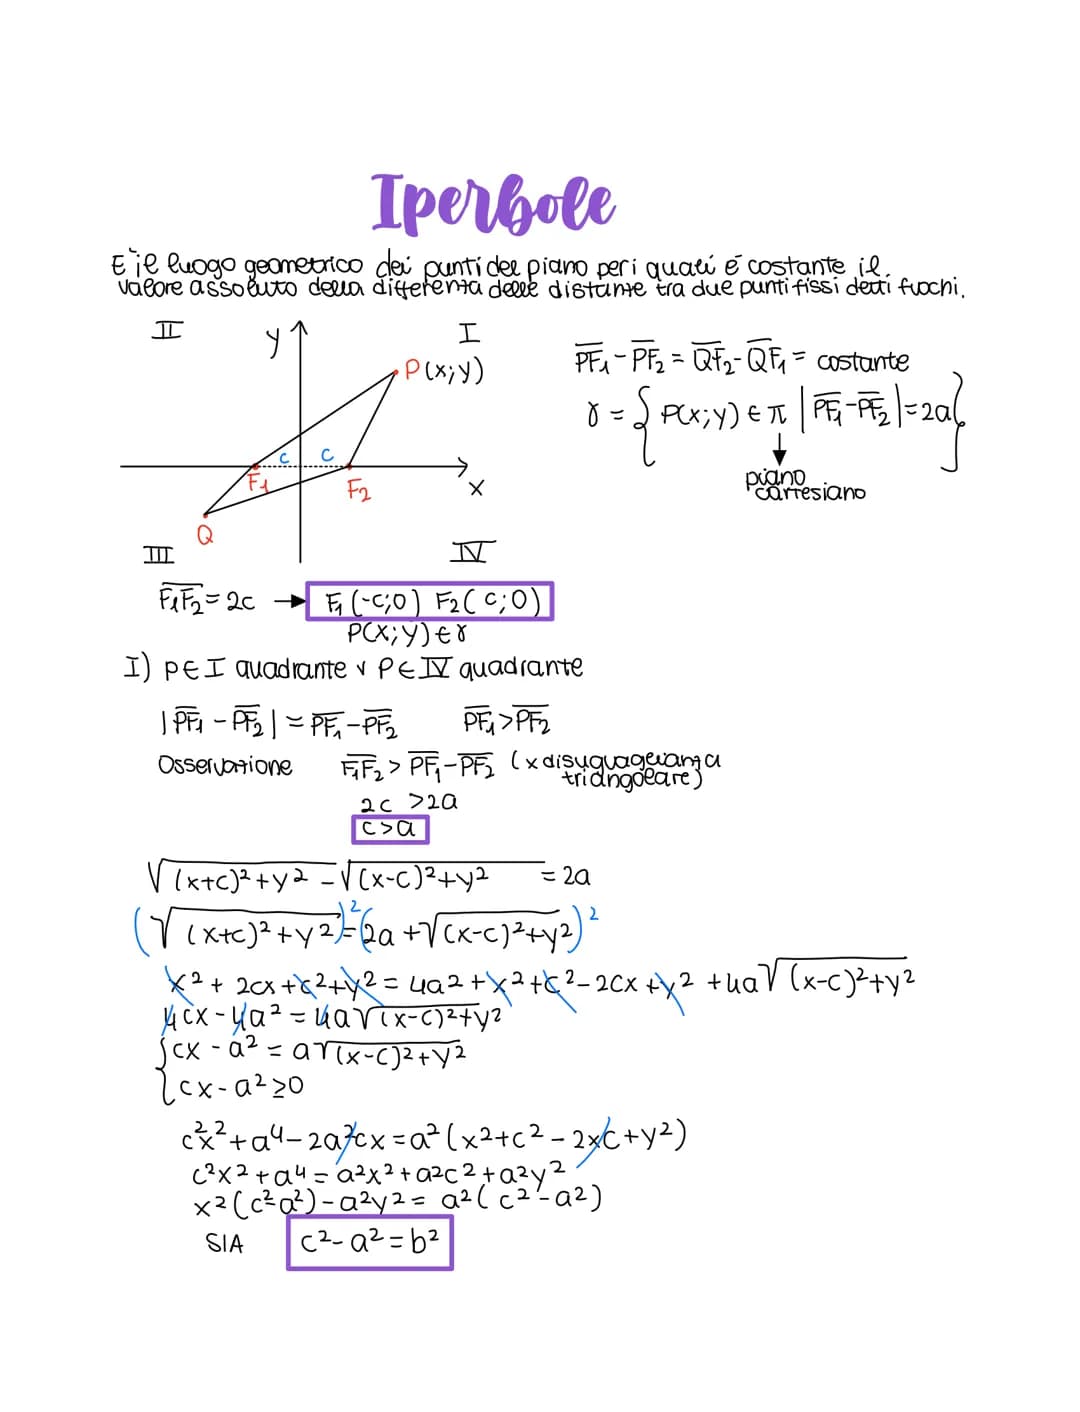 Iperbole
E'il luogo geometrico dei punti del piano per i quali é costante il
valore assoluto della differenza delle distanze tra due punti fissi detti fuochi.
II
y
I
P(x;y)
c
c
F₁
F₂
x
Q
III
IV
PF₁ - PF₂ = QF₂ - QF₁ = costante
γ = { P(x;y) ∈ π | |PF₁ - PF₂| = 2a }
piano
cartesiano
F₁F₂ = 2c → F₁(-c;0) F₂(c;0)
P(x;y) ∈ γ
I) P ∈ I quadrante v P ∈ IV quadrante
|PF₁ - PF₂| = PF₁ - PF₂ PF₁ > PF₂
Osservazione F₁F₂ > PF₁ - PF₂ (x disuguaglianza
triangolare)
2c > 2a
c > a
√(x+c)² + y² - √(x-c)² + y² = 2a
(√(x+c)² + y²)² = (2a + √(x-c)² + y²)²
x² + 2cx + c² + y² = 4a² + x² + c² - 2cx + y² + 4a√(x-c)² + y²
4cx - 4a² = 4a√(x-c)² + y²
{ cx - a² = a√(x-c)² + y²
cx - a² ≥ 0
c²x² + a⁴ - 2a²cx = a²(x² + c² - 2xc + y²)
c²x² + a⁴ = a²x² + a²c² + a²y²
x²(c² - a²) - a²y² = a²(c² - a²)
SIA c² - a² = b²